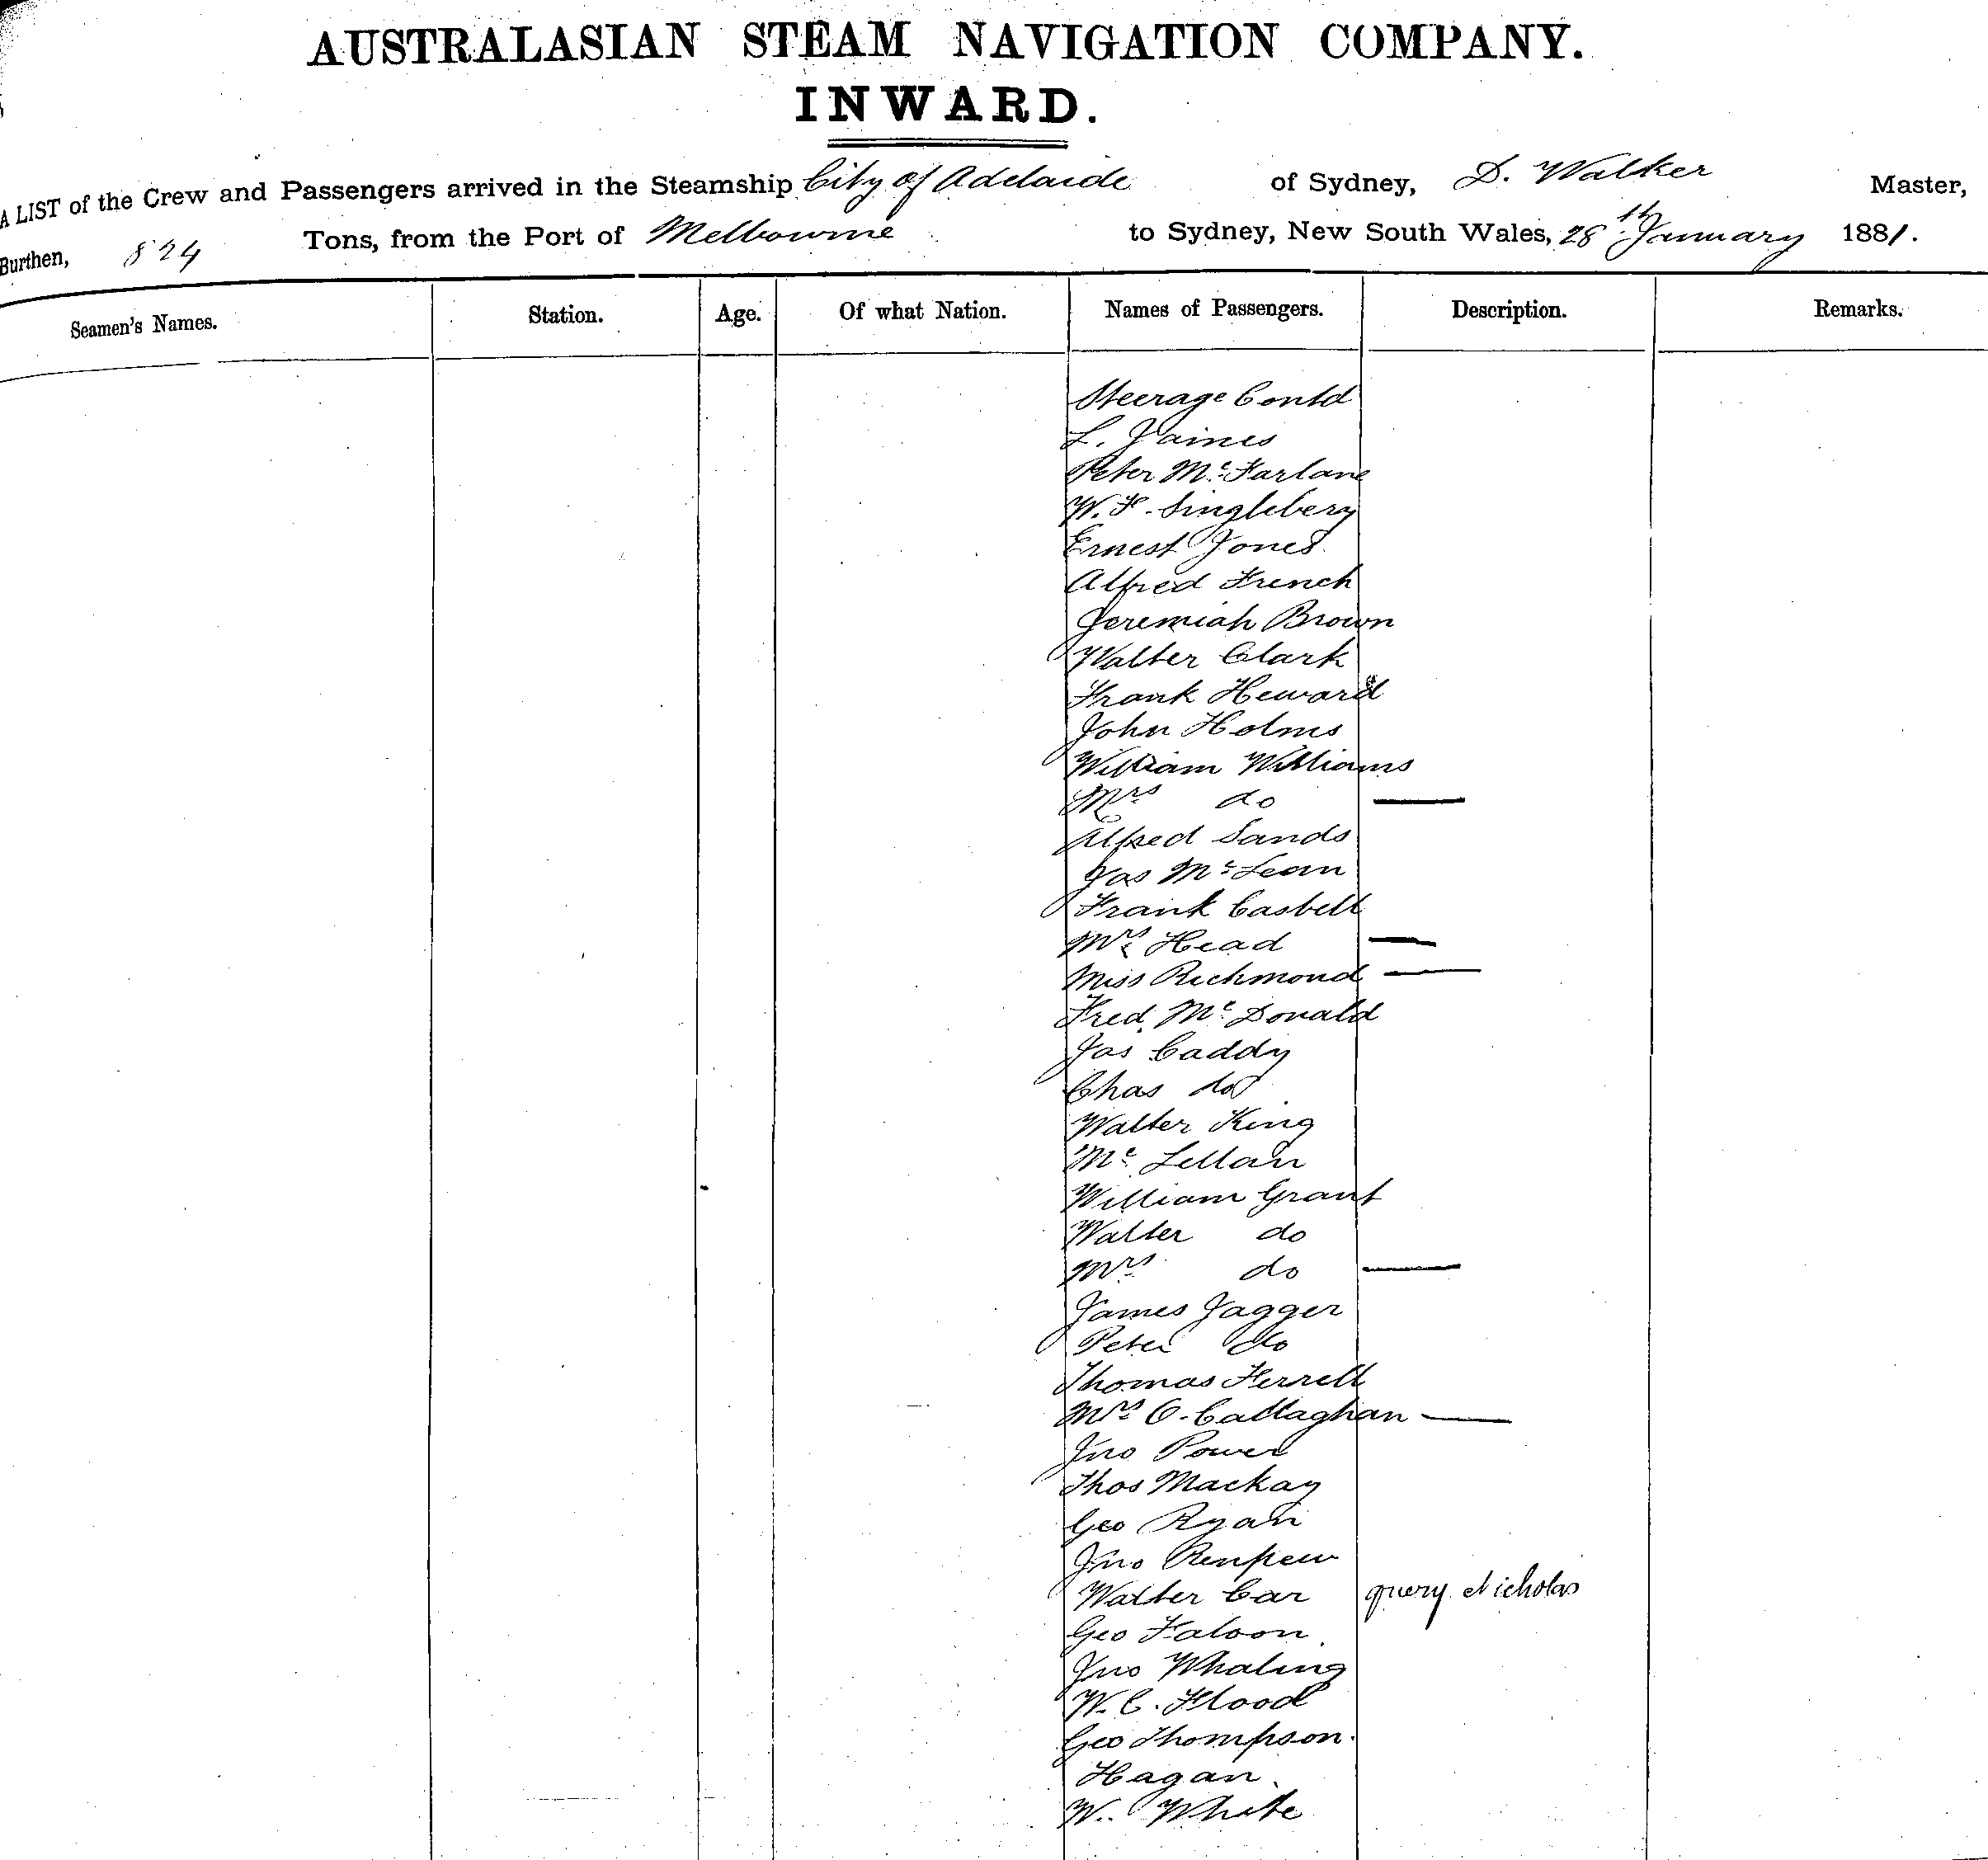 AUSTRALASIAN STEAM NAVIGATION COMPANY.
INWARD.
A LIST of the Crew and Passengers arrived in the Steamship City of Adelaide of Sydney, D. Walker Master,
Burthen, 824 Tons, from the Port of Melbourne to Sydney, New South Wales, 28th January 1881.
Seamen's Names. Station. Age. Of what Nation. Names of Passengers. Description. Remarks.
Steerage Contd
L. Jaines
Peter Mc Farlane
W. F. Singlebery
Ernest Jones
Alfred French
Jeremiah Brown
Walter Clark
Frank Heward
John Holms
William Williams
Mrs do —
Alfred Sands
Jas Mc Lean
Frank Casbelt
Mrs Head —
Miss Richmond —
Fred Mc Donald
Jas Caddy
Chas do
Walter King
Mc Lellan
William Grant
Walter do
Mrs do —
James Jagger
Peter do
Thomas Ferrell
Mrs O. Callaghan —
Jno Power
Thos Mackay
Geo Ryan
Jno Renfrew
Walter Car query Nicholas
Geo Faloon
Jno Whaling
W. C. Flood
Geo Thompson.
Hagan
W. White